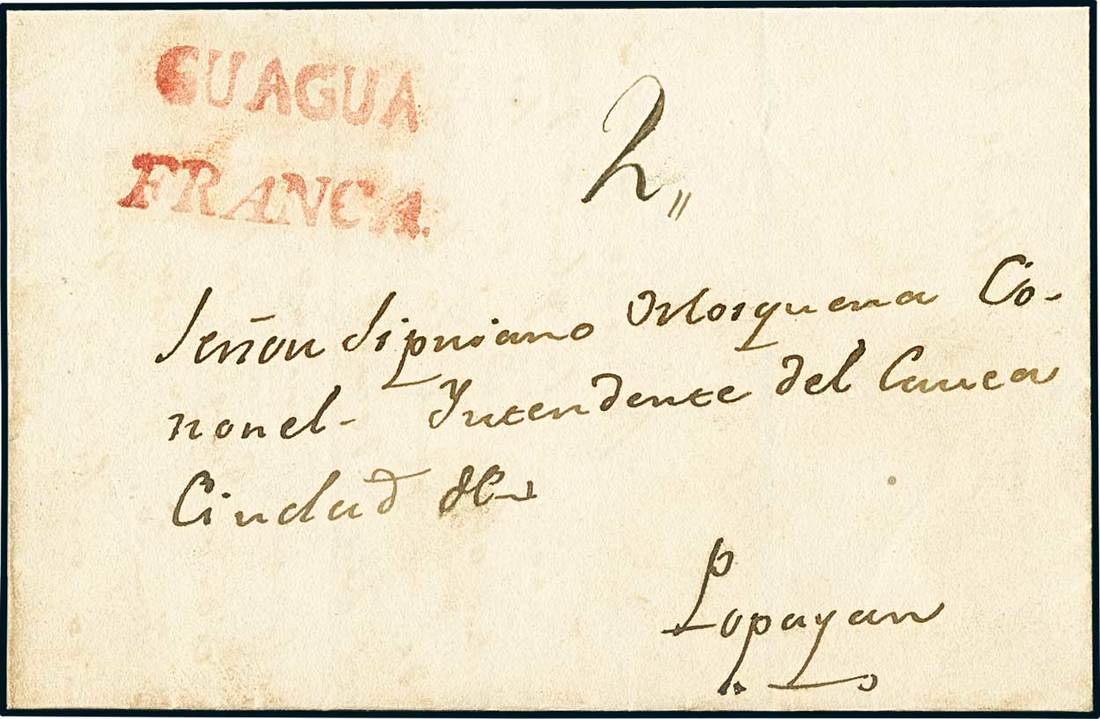 GUAGUA
FRANCA.
2„
Señor Sipriano Mosquera Co-
ronel- Yntendente del Cauca
Ciudad de
Popayan